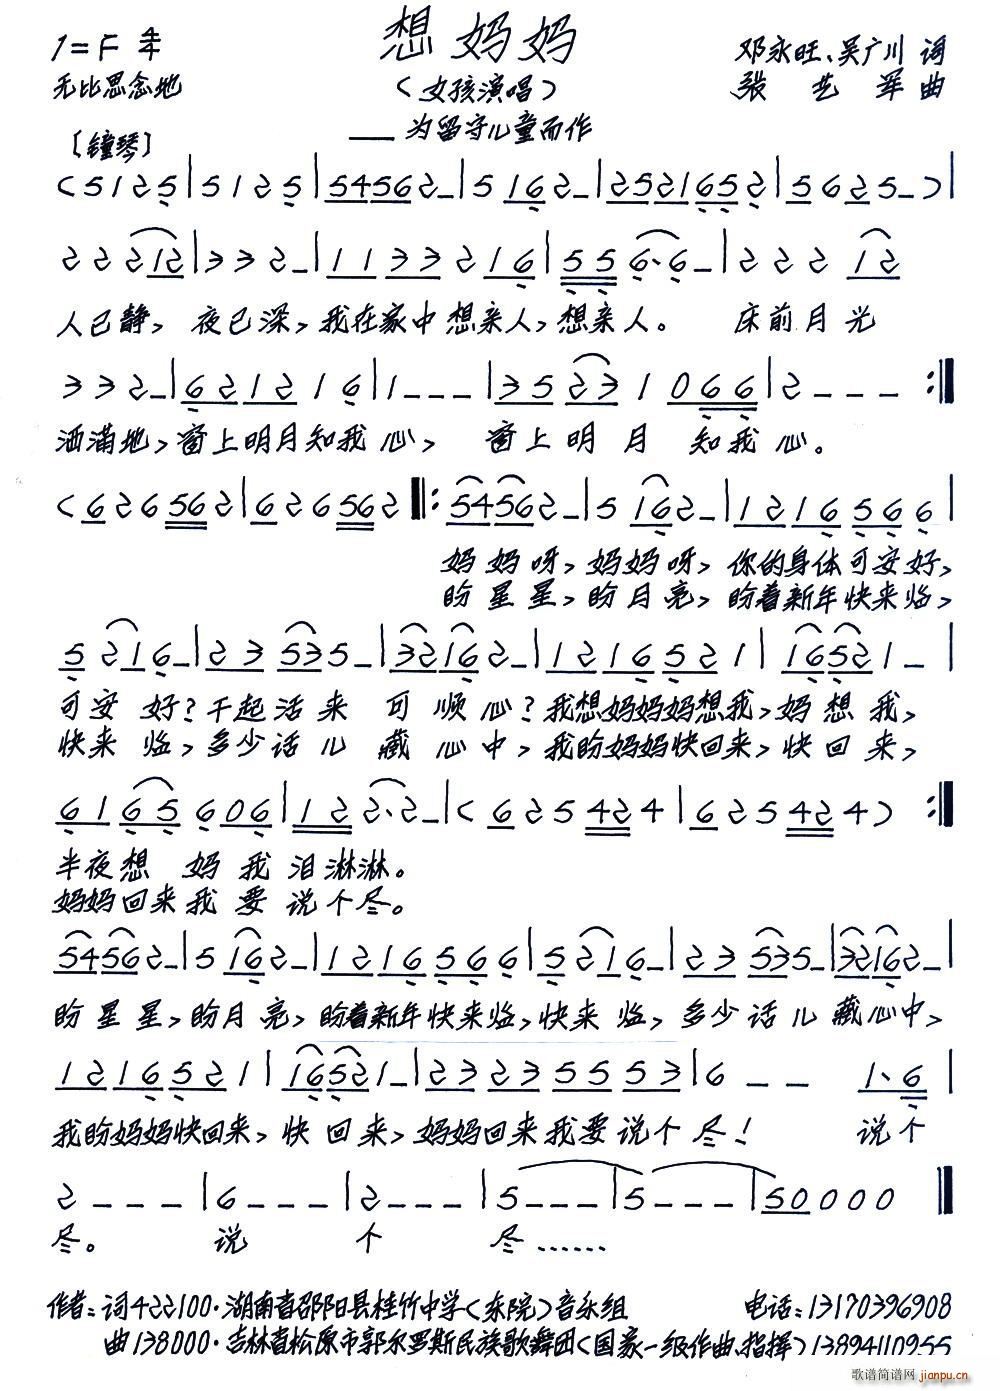 想妈妈
1=F 4/4
邓永旺、吴广川 词
无比思念地
(女孩演唱)
张艺军 曲
——为留守儿童而作
[钟琴]
(5 1 2 5 | 5 1 2 5 | 5 4 5 6 2 – | 5 1 6 2 – | 2 5 2 1 6 5 2 | 5 6 2 5 – ) |
2 2 2 1 2 | 3 3 2 – | 1 1 3 3 2 1 6 | 5 5 6 · 6 – | 2 2 2 1 2
人已静, 夜已深, 我在家中想亲人, 想亲人。 床前月光
3 3 2 – | 6 2 1 2 1 6 | 1 – – – | 3 5 2 3 1 0 6 6 | 2 – – – :‖
洒满地, 窗上明月知我心, 窗上明月 知我心。
(6 2 6 5 6 2 | 6 2 6 5 6 2 ‖: 5 4 5 6 2 – | 5 1 6 2 – | 1 2 1 6 5 6 6 |
妈妈呀, 妈妈呀, 你的身体可安好,
盼星星, 盼月亮, 盼着新年快来临,
5 2 1 6 – | 2 3 5 3 5 – | 3 2 1 6 2 – | 1 2 1 6 5 2 1 | 1 6 5 2 1 – |
可安好? 干起活来可顺心? 我想妈妈妈想我, 妈想我,
快来临, 多少话儿藏心中, 我盼妈妈快回来, 快回来,
6 1 6 5 6 0 6 | 1 2 2 · 2 – | (6 2 5 4 2 4 | 6 2 5 4 2 4 ) :‖
半夜想妈我泪淋淋。
妈妈回来我要说个尽。
5 4 5 6 2 – | 5 1 6 2 – | 1 2 1 6 5 6 6 | 5 2 1 6 – | 2 3 5 3 5 – | 3 2 1 6 2 – |
盼星星, 盼月亮, 盼着新年快来临, 快来临, 多少话儿藏心中,
1 2 1 6 5 2 1 | 1 6 5 2 1 – | 2 3 2 3 5 5 5 3 | 6 – – 1 · 6 |
我盼妈妈快回来, 快回来, 妈妈回来我要说个尽! 说个
2 – – – | 6 – – – | 2 – – – | 5 – – – | 5 – – – | 5 0 0 0 0 ‖
尽。 说 个 尽……
作者: 词422100·湖南省邵阳县桂竹中学(东院)音乐组 电话: 13170396908
曲138000·吉林省松原市郭尔罗斯民族歌舞团(国家一级作曲、指挥)13894110955
歌谱简谱网 jianpu.cn